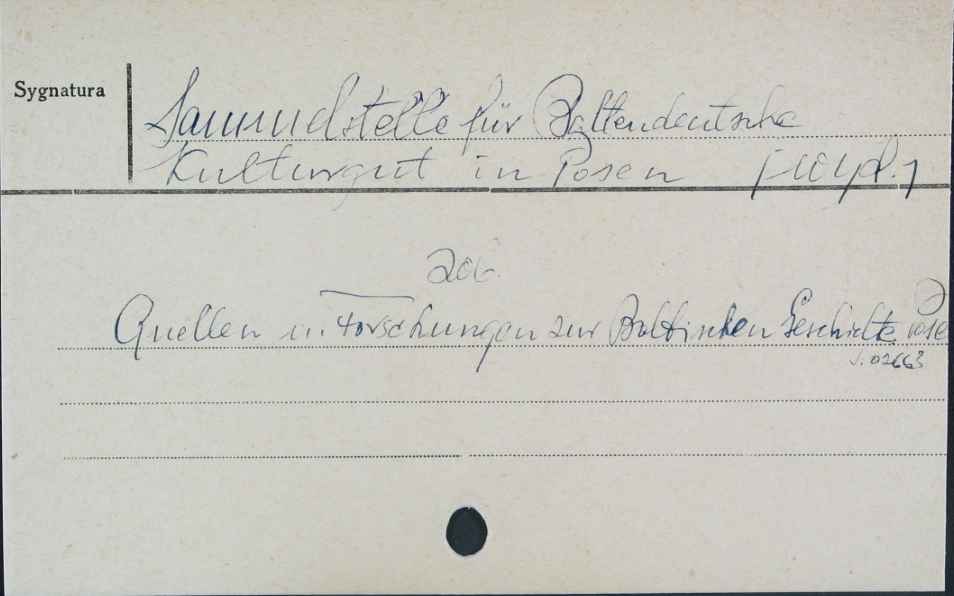 Sygnatura
Sammelstelle für Baltendeutsche
Kulturgut in Posen [wyd.]
zob.
Quellen u. Forschungen zur Baltischen Geschichte
J. 02663